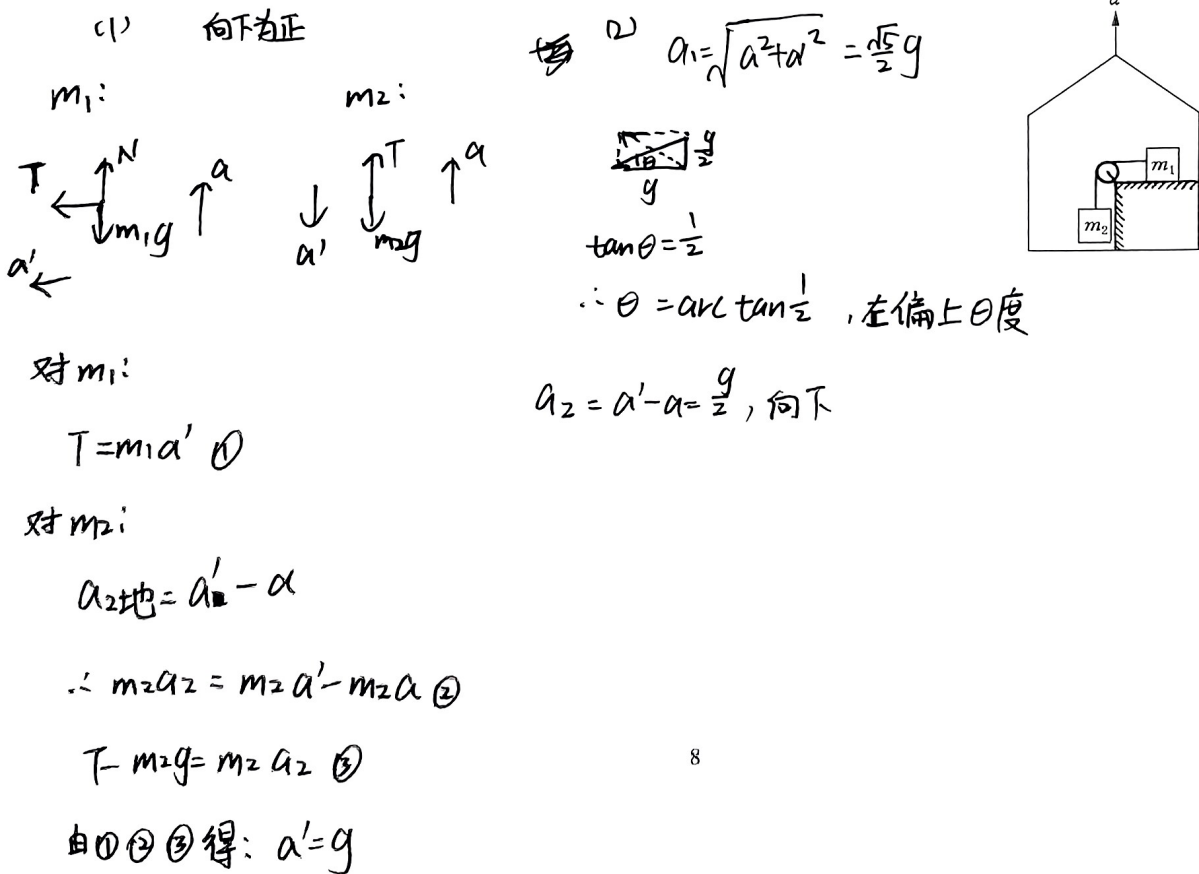 (1) 向下为正
m₁: m₂:
T N a T a
m₁g m₂g
a' a'
对m₁:
T=m₁a' ①
对m₂:
a₂地=a'-a
∴ m₂a₂=m₂a'-m₂a ②
T-m₂g=m₂a₂ ③
由①②③得: a'=g
(2) a₁=√(a²+a'²)=√5/2 g
θ g/2
g
tanθ=1/2
∴θ=arctan1/2,左偏上θ度
a₂=a'-a=g/2,向下
a
m₁
m₂
8